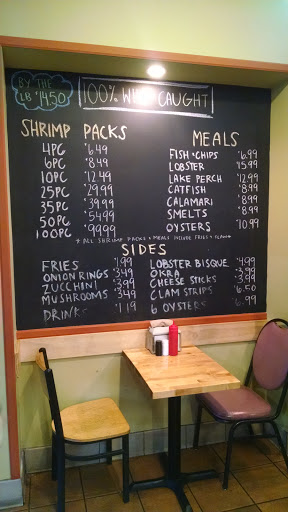 BY THE
LB $14.50
100% WILD CAUGHT
SHRIMP PACKS
4PC $6.49
6PC $8.49
10PC $12.49
25PC $29.99
35PC $39.99
50PC $54.99
100PC $99.99
* ALL SHRIMP PACKS & MEALS INCLUDE FRIES & SLAW *
MEALS
FISH & CHIPS $6.99
LOBSTER $15.99
LAKE PERCH $12.99
CATFISH $8.99
CALAMARI $8.99
SMELTS $8.99
OYSTERS $10.99
SIDES
FRIES $1.99
ONION RINGS $3.49
ZUCCHINI $3.99
MUSHROOMS $3.49
DRINKS $1.19
LOBSTER BISQUE $4.99
OKRA $3.99
CHEESE STICKS $3.99
CLAM STRIPS $6.50
6 OYSTERS $6.99